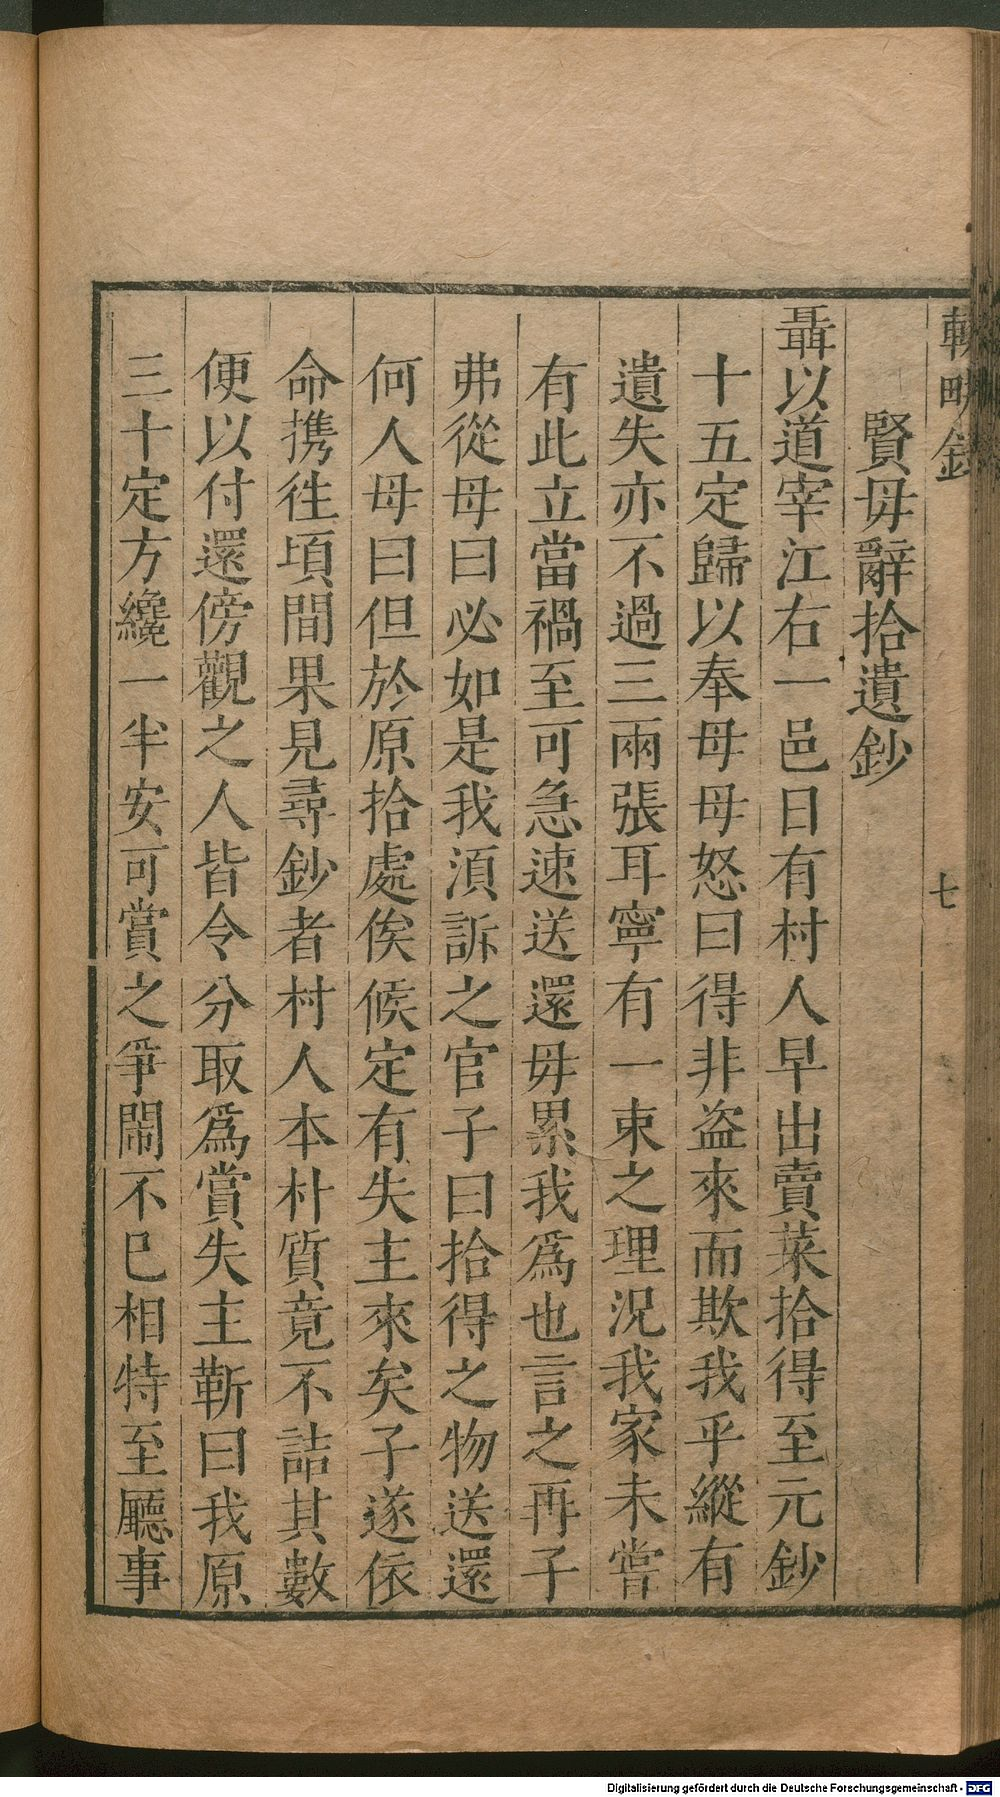 輟畊錄 七
賢毋辭拾遺鈔
聶以道宰江右一邑日有村人早出賣菜拾得至元鈔
十五定歸以奉母母怒曰得非盗來而欺我乎縱有
遺失亦不過三兩張耳寧有一束之理況我家未嘗
有此立當禍至可急速送還毋累我爲也言之再子
弗從母曰必如是我須訴之官子曰拾得之物送還
何人母曰但於原拾處俟候定有失主來矣子遂依
命携徃頃間果見尋鈔者村人本朴質竟不詰其數
便以付還傍觀之人皆令分取爲賞失主靳曰我原
三十定方纔一半安可賞之爭鬧不已相特至廳事
Digitalisierung gefördert durch die Deutsche Forschungsgemeinschaft - DFG